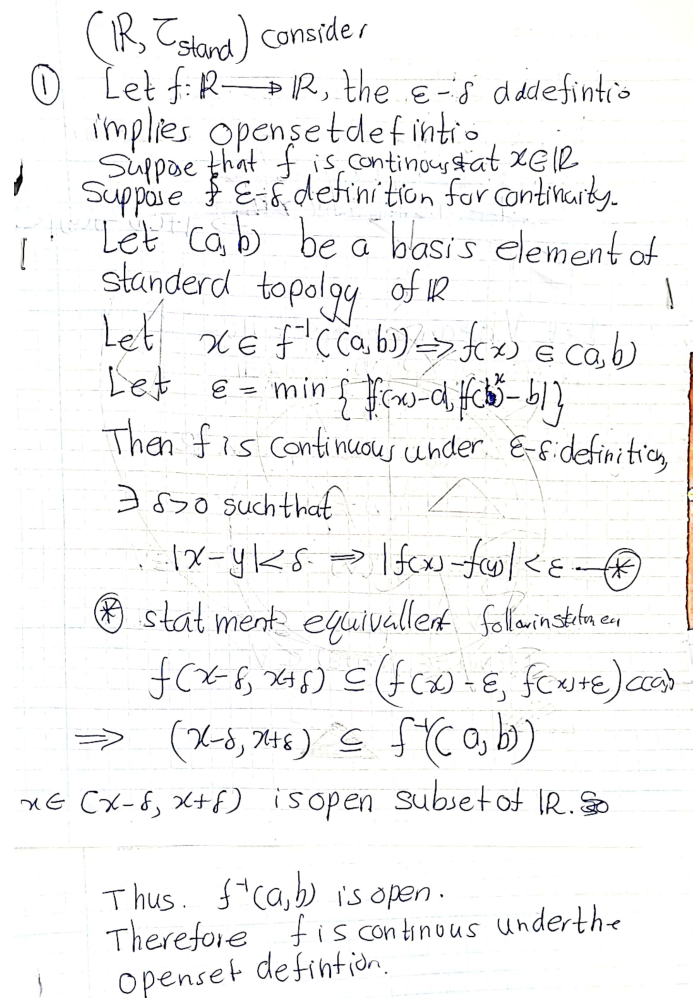 (ℝ, τ_stand) consider
① Let f: ℝ → ℝ, the ε-δ dddefintio
implies opensetdefintio
Suppose that f is continous at x∈ℝ
Suppose ε-δ definition for continuity.
Let (a,b) be a basis element of
standerd topolgy of ℝ
Let x ∈ f⁻¹((a,b)) ⇒ f(x) ∈ (a,b)
Let ε = min { |f(x)-a|, |f(x)-b| }
Then f is continuous under ε-δ definition,
∃ δ>0 such that
|x-y|<δ ⇒ |f(x)-f(y)|<ε — ⊛
⊛ statment equivallent
f(x-δ, x+δ) ⊆ (f(x)-ε, f(x)+ε) ⊂(a,b)
⇒ (x-δ, x+δ) ⊆ f⁻¹((a,b))
x∈ (x-δ, x+δ) is open subset of ℝ.
Thus. f⁻¹(a,b) is open.
Therefore f is continous underthe
openset defintion.